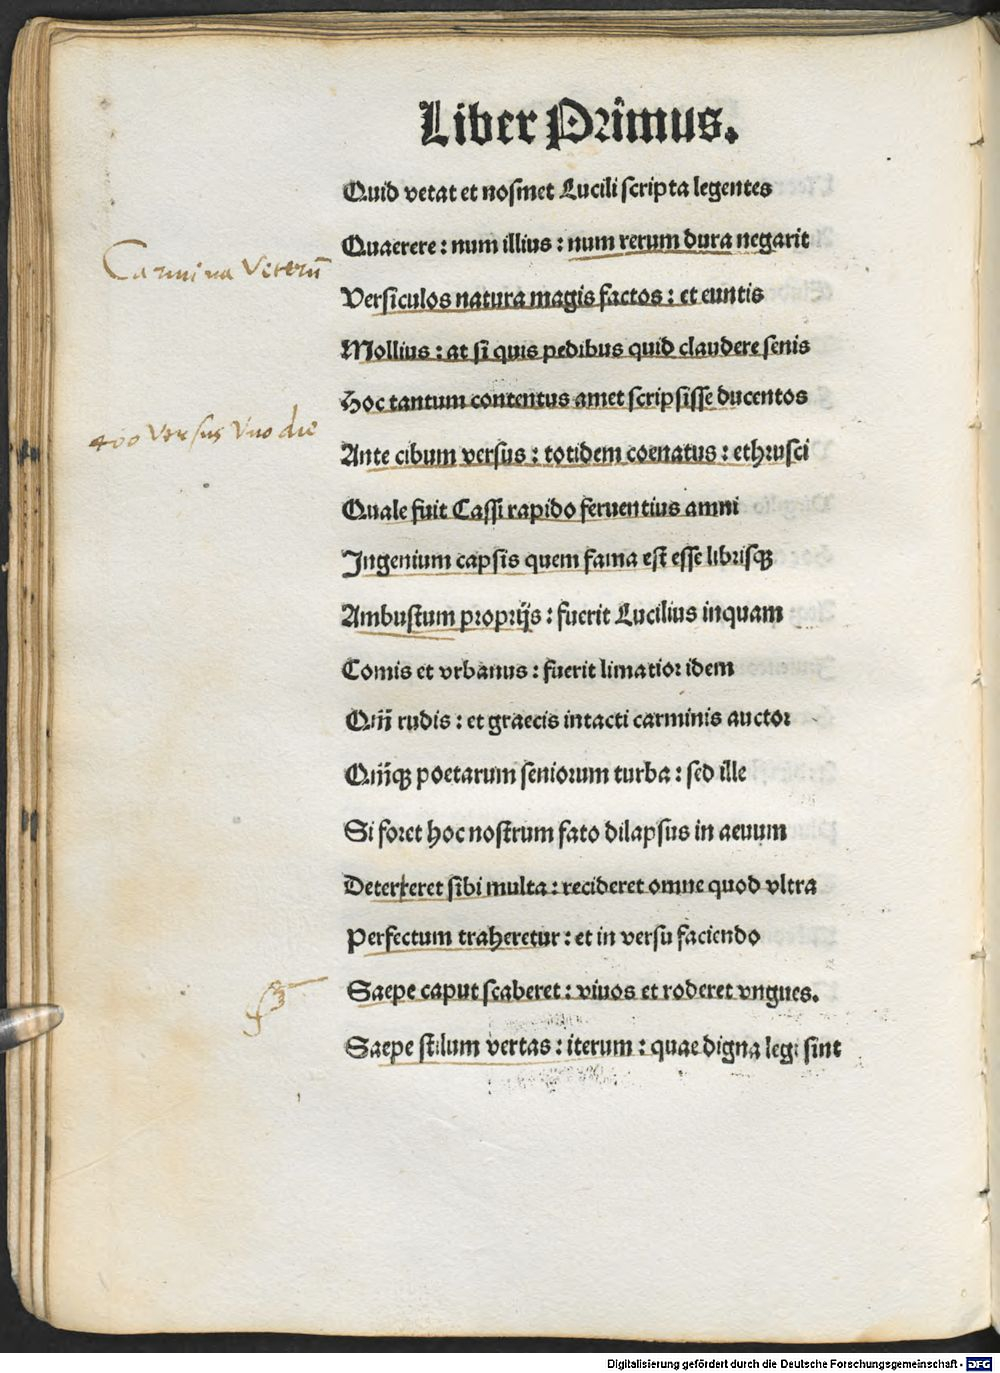 Liber Primus.
Quid vetat et nosmet Lucili scripta legentes
Quaerere : num illius : num rerum dura negarit
Carmina Veterū
Versiculos natura magis factos : et euntis
Mollius : at si quis pedibus quid claudere senis
Hoc tantum contentus amet scripsisse ducentos
400 versus vno die
Ante cibum versus : totidem coenatus : ethrusci
Quale fuit Cassi rapido feruentius amni
Ingenium capsis quem fama est esse librisqꝫ
Ambustum proprijs : fuerit Lucilius inquam
Comis et vrbanus : fuerit limatior idem
Qm̄ rudis : et graecis intacti carminis auctor
Qm̄qꝫ poetarum seniorum turba : sed ille
Si foret hoc nostrum fato dilapsus in aeuum
Detereret sibi multa : recideret omne quod vltra
Perfectum traheretur : et in versu faciendo
Saepe caput scaberet : viuos et roderet vngues.
Saepe stilum vertas : iterum : quae digna legi sint
Digitalisierung gefördert durch die Deutsche Forschungsgemeinschaft - DFG